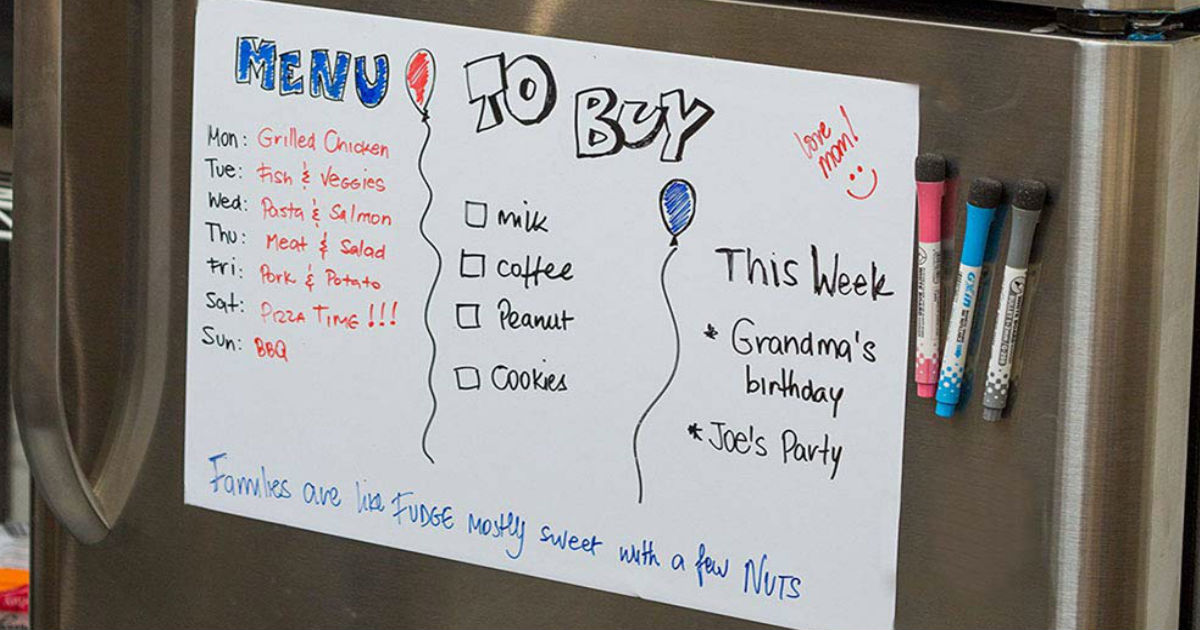 MENU
Mon: Grilled Chicken
Tue: Fish & Veggies
Wed: Pasta & Salmon
Thu: Meat & Salad
Fri: Pork & Potato
Sat: PIZZA TIME !!!
Sun: BBQ
TO BUY
milk
coffee
Peanut
Cookies
love
mom!
This Week
* Grandma's
birthday
* Joe's Party
Families are like FUDGE mostly sweet with a few NUTS